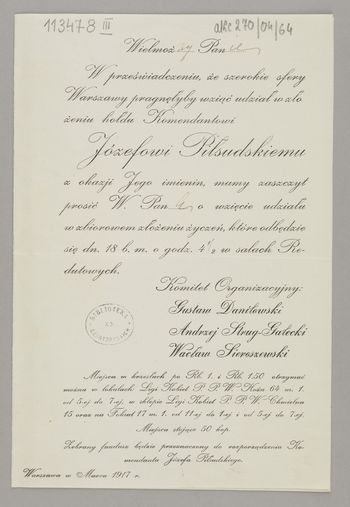 113478 III
akc 270/04/64
Wielmożny Pan
W przeświadczeniu, że szerokie sfery
Warszawy pragnęłyby wziąć udział w zło
żeniu hołdu Komendantowi
Józefowi Piłsudskiemu
z okazji Jego imienin, mamy zaszczyt
prosić W. Pana o wzięcie udziału
w zbiorowem złożeniu życzeń, które odbędzie
się dn. 18 b. m. o godz. 4½ w salach Re-
dutowych.
Komitet Organizacyjny:
Gustaw Daniłowski
Andrzej Strug-Gałecki
Wacław Sieroszewski
BIBLIOTEKA
Miejsca w krzesłach po Rb. 1. i Rb. 1.50 otrzymać
można w lokalach Ligi Kobiet P. P. W. Hoża 64 m. 1.
od 5-ej do 7-ej, w sklepie Ligi Kobiet P. P. W. Chmielna
15 oraz na Foksal 17 m. 1. od 11-ej do 1-ej i od 5-ej do 7-ej.
Miejsca stojące 50 kop.
Zebrany fundusz będzie przeznaczony do rozporządzenia Ko-
mendanta Józefa Piłsudskiego.
Warszawa w Marcu 1917 r.